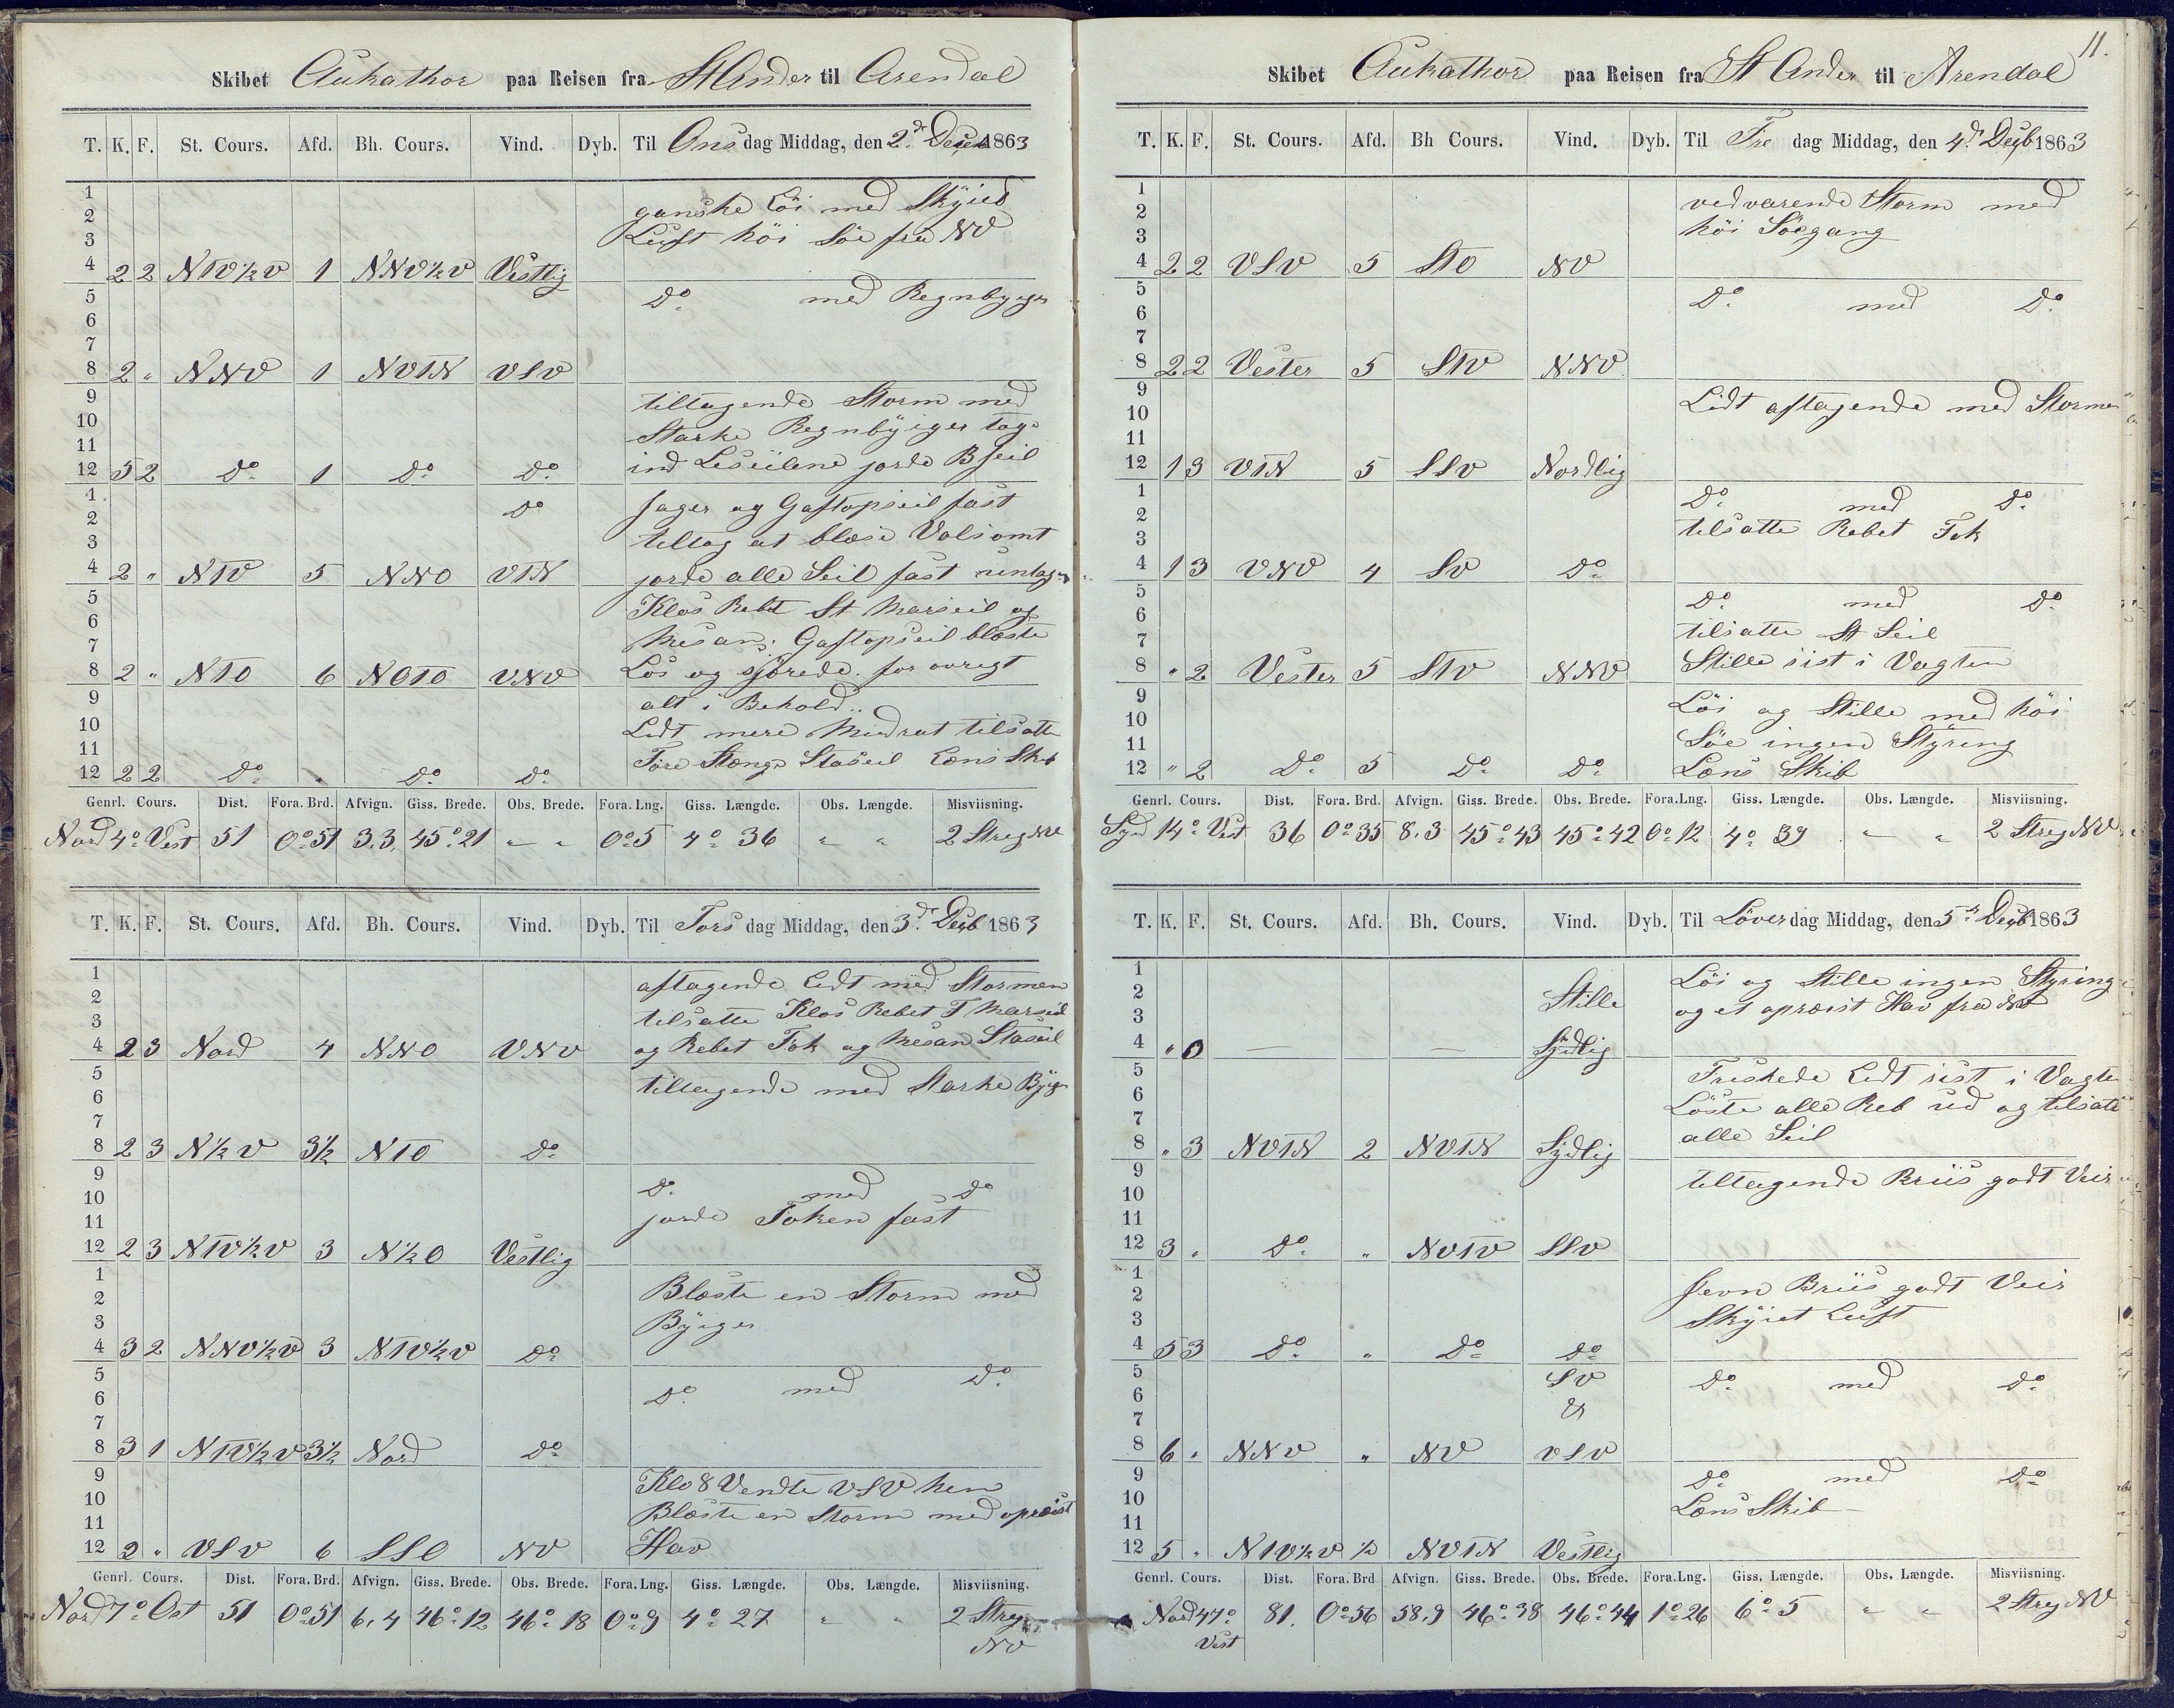 Skibet Aukathor paa Reisen fra St Ander til Arendal
T. K. F. St. Cours. Afd. Bh. Cours. Vind. Dyb. Til Onsdag Middag, den 2dr Decb 1863
1 ganske Löi med Skyied
2 Luft höi Söe fra NV
3
4 2 2 NTV½V 1 NNV½V Vestlig
5 Do med Regnbyger
6
7
8 2 " NNV 1 NVTN VSV
9 tiltagende Storm med
10 Starke Regnbyiger tog
11 ind Leseilene jorde B seil
12 5 2 Do 1 Do Do
1 Do Jager og Gaftopseil fast
2 tiltog at blæse Volsomt
3
4 2 " NTV 5 NNO VTN jorde alle Seil fast
5 Klos Rebet St Marseil og
6 Mesan; Gaftopseil blæste
7
8 2 " NTO 6 NOTO VNV Lös og for ovregt
9 alt i Behold
10 Lidt mere Mudrat tilsatte
11 Fore Stange Staseil Læns Skib
12 2 2 Do " Do Do
Genrl. Cours. Dist. Fora. Brd. Afvign. Giss. Brede. Obs. Brede. Fora. Lng. Giss. Længde. Obs. Længde. Misviisning.
Nord 4° Vest 51 0°51 3.3 45°21 " " 0°5 4°36 " " 2 Streg NV
T. K. F. St. Cours. Afd. Bh. Cours. Vind. Dyb. Til Torsdag Middag, den 3dr Decb 1863
1 aftagende Lidt med Stormen
2 tilsatte Klos Rebet F Marseil
3
4 2 3 Nord 4 NNO VNV og Rebet Fok og Mesan Staseil
5 tiltagende med Starke Byger
6
7
8 2 3 N½V 3½ NTO Do
9 Do med Do
10 jorde Foken fast
11
12 2 3 NTV½V 3 N½O Vestlig
1 Blæste en Storm med
2 Byiger
3
4 3 2 NNV½V 3 NTV½V Do
5 Do med Do
6
7
8 3 1 NTV½V 3½ Nord Do
9 Klo 8 Vendte VSV hen
10 Blæste en Storm med opreist
11
12 2 " VSV 6 SSO NV Hav
Genrl. Cours. Dist. Fora. Brd. Afvign. Giss. Brede. Obs. Brede. Fora. Lng. Giss. Længde. Obs. Længde. Misviisning.
Nord 7° Ost 51 0°51 6,4 46°12 46°18 0°9 4°27 " " 2 Streg
NV
11.
Skibet Aukathor paa Reisen fra St Ander til Arendal
T. K. F. St. Cours. Afd. Bh Cours. Vind. Dyb. Til Fredag Middag, den 4dr Decb 1863
1 vedvarende Storm med
2 höi Söegang
3
4 2 2 VSV 5 STO NV
5 Do med Do
6
7
8 2 2 Vester 5 STV NNV
9 Lidt aftagende med Stormen
10
11
12 1 3 VTN 5 SSV Nordlig
1 Do med Do
2 tilsatte Rebet Fok
3
4 1 3 VNV 4 SV Do
5 Do med Do
6 tilsatte St Seil
7
8 " 2 Vester 5 STV NNV Stille sist i Vagten
9 Löi og Stille med höi
10
11 Söe ingen Styring
12 " 2 Do 5 Do Do Læns Skib
Genrl. Cours. Dist. Fora. Brd. Afvign. Giss. Brede. Obs. Brede. Fora. Lng. Giss. Længde. Obs. Længde. Misviisning.
Syd 14° Vest 36 0°35 8.3 45°43 45°42 0°12 4°39 " " 2 Streg NV
T. K. F. St. Cours. Afd. Bh. Cours. Vind. Dyb. Til Löverdag Middag, den 5dr Decb 1863
1 Löi og Stille ingen Styring
2 Stille og et opræist Hav fra NV
3
4 " 0 — — Sydlig
5 Friskede Lidt sist i Vagten
6 Löste alle Reb ud og tilsatte
7
8 " 3 NVTN 2 NVTN Sydlig alle Seil
9 tiltagende Briis godt Veir
10
11
12 3 " Do " NVTV SSV
1 Jevn Briis godt Veir
2 Skyiet Luft
3
4 5 3 Do " Do Do
5 SV Do med Do
6 &
7
8 6 " NNV " NV VSV
9 Do med Do
10 Læns Skib
11
12 5 " NTV½V ½ NVTN Vestlig
Genrl. Cours. Dist. Fora. Brd Afvign. Giss. Brede. Obs. Brede. Fora. Lng. Giss. Længde. Obs. Længde. Misviisning.
Nord 47° 81. 0°56 58,9 46°38 46°44 1°26 6°5 " " 2 Streg NV
Vest